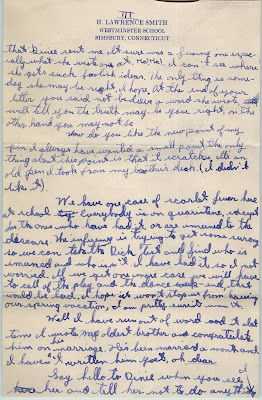 III
H. LAWRENCE SMITH
WESTMINSTER SCHOOL
SIMSBURY, CONNECTICUT
that Dinie sent me. It sure was a funny one espec-
ially what she wrote one at. Ha! Ha! I can't see where
she gets such foolish ideas. The only thing is some-
day she may be right, I hope. At the end of your
letter you said not to believe a word she wrote
well tell you the truth may be your right, on the
other hand you may not be.
How do you like the new point of my
pen I always have wanted a small point the only
thing about this point is that it scratches. It's an
old pen I took from my brother's desk. (I didn't
like it)
We have one case of scarlet fever here
at school. Everybody is on quarantine, except
for the ones who have had it, or are immuned to the
disease. The infirmary is trying to get some serum
so we can take the Dick test and find who is
immuned and who isn't. I have had it, so I not
worried. If we get one more case we will have
to call off the play and the dance week-end, that
would be bad. I hope it won't stop us from having
our spring vacation, I am pretty sure it won't.
Well I have run out of word and it late
time I wrote my oldest brother and congratulate
him on his marriage. He's been married a month and
I haven't written him yet, oh dear.
Say hello to Dinie when you see
her and tell her not to do anything I